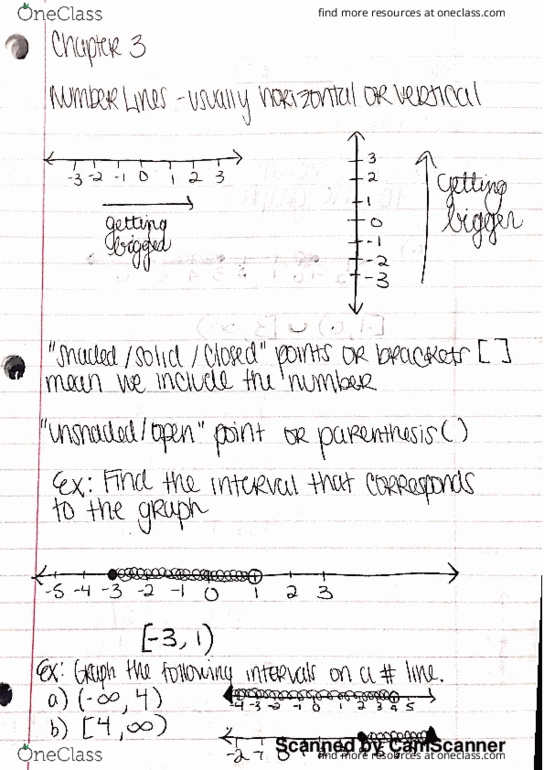 OneClass
find more resources at oneclass.com
Chapter 3
Number Lines - usually horizontal or vertical
-3 -2 -1 0 1 2 3
getting
bigger
3
2
1
0
-1
-2
-3
getting
bigger
"shaded/solid/closed" points or brackets [ ]
mean we include the number
"unshaded/open" point or parenthesis ( )
Ex: Find the interval that corresponds
to the graph
-5 -4 -3 -2 -1 0 1 2 3
[-3, 1)
Ex: Graph the following intervals on a # line.
a) (-∞, 4)
-4 -3 -2 -1 0 1 2 3 4 5
b) [4, ∞)
-2 -1 0
Scanned by CamScanner
OneClass
find more resources at oneclass.com